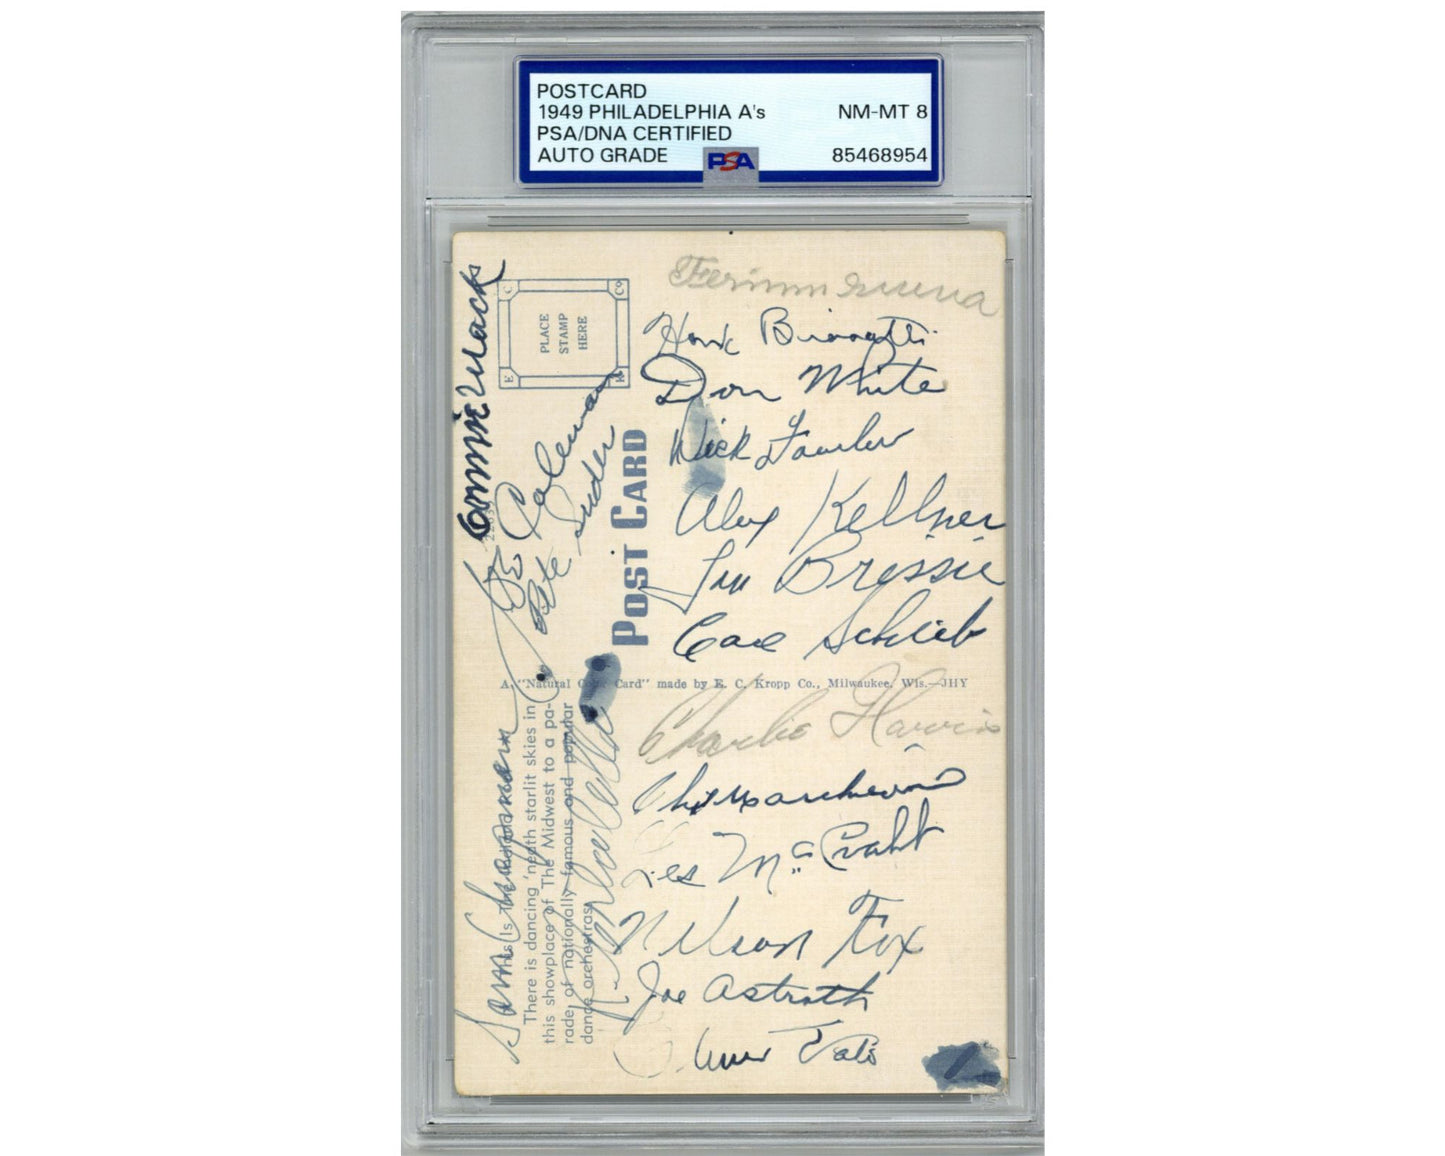 POSTCARD
1949 PHILADELPHIA A's NM-MT 8
PSA/DNA CERTIFIED
AUTO GRADE PSA 85468954
Connie Mack
C Co
PLACE
STAMP
HERE
E K
Joe Coleman
Pete Suder
POST CARD
Sam Chapman
Hank Biasatti
Don White
Dick Fowler
Alex Kellner
Lou Brissie
Carl Scheib
A "Natural Color Card" made by E. C. Kropp Co., Milwaukee, Wis.—JHY
There is dancing 'neath starlit skies in
this showplace of The Midwest to a pa-
rade of nationally famous and popular
dance orchestras.
Charlie Harris
Phil Marchildon
Les McCrabb
Nelson Fox
Joe Astroth
Elmer Valo